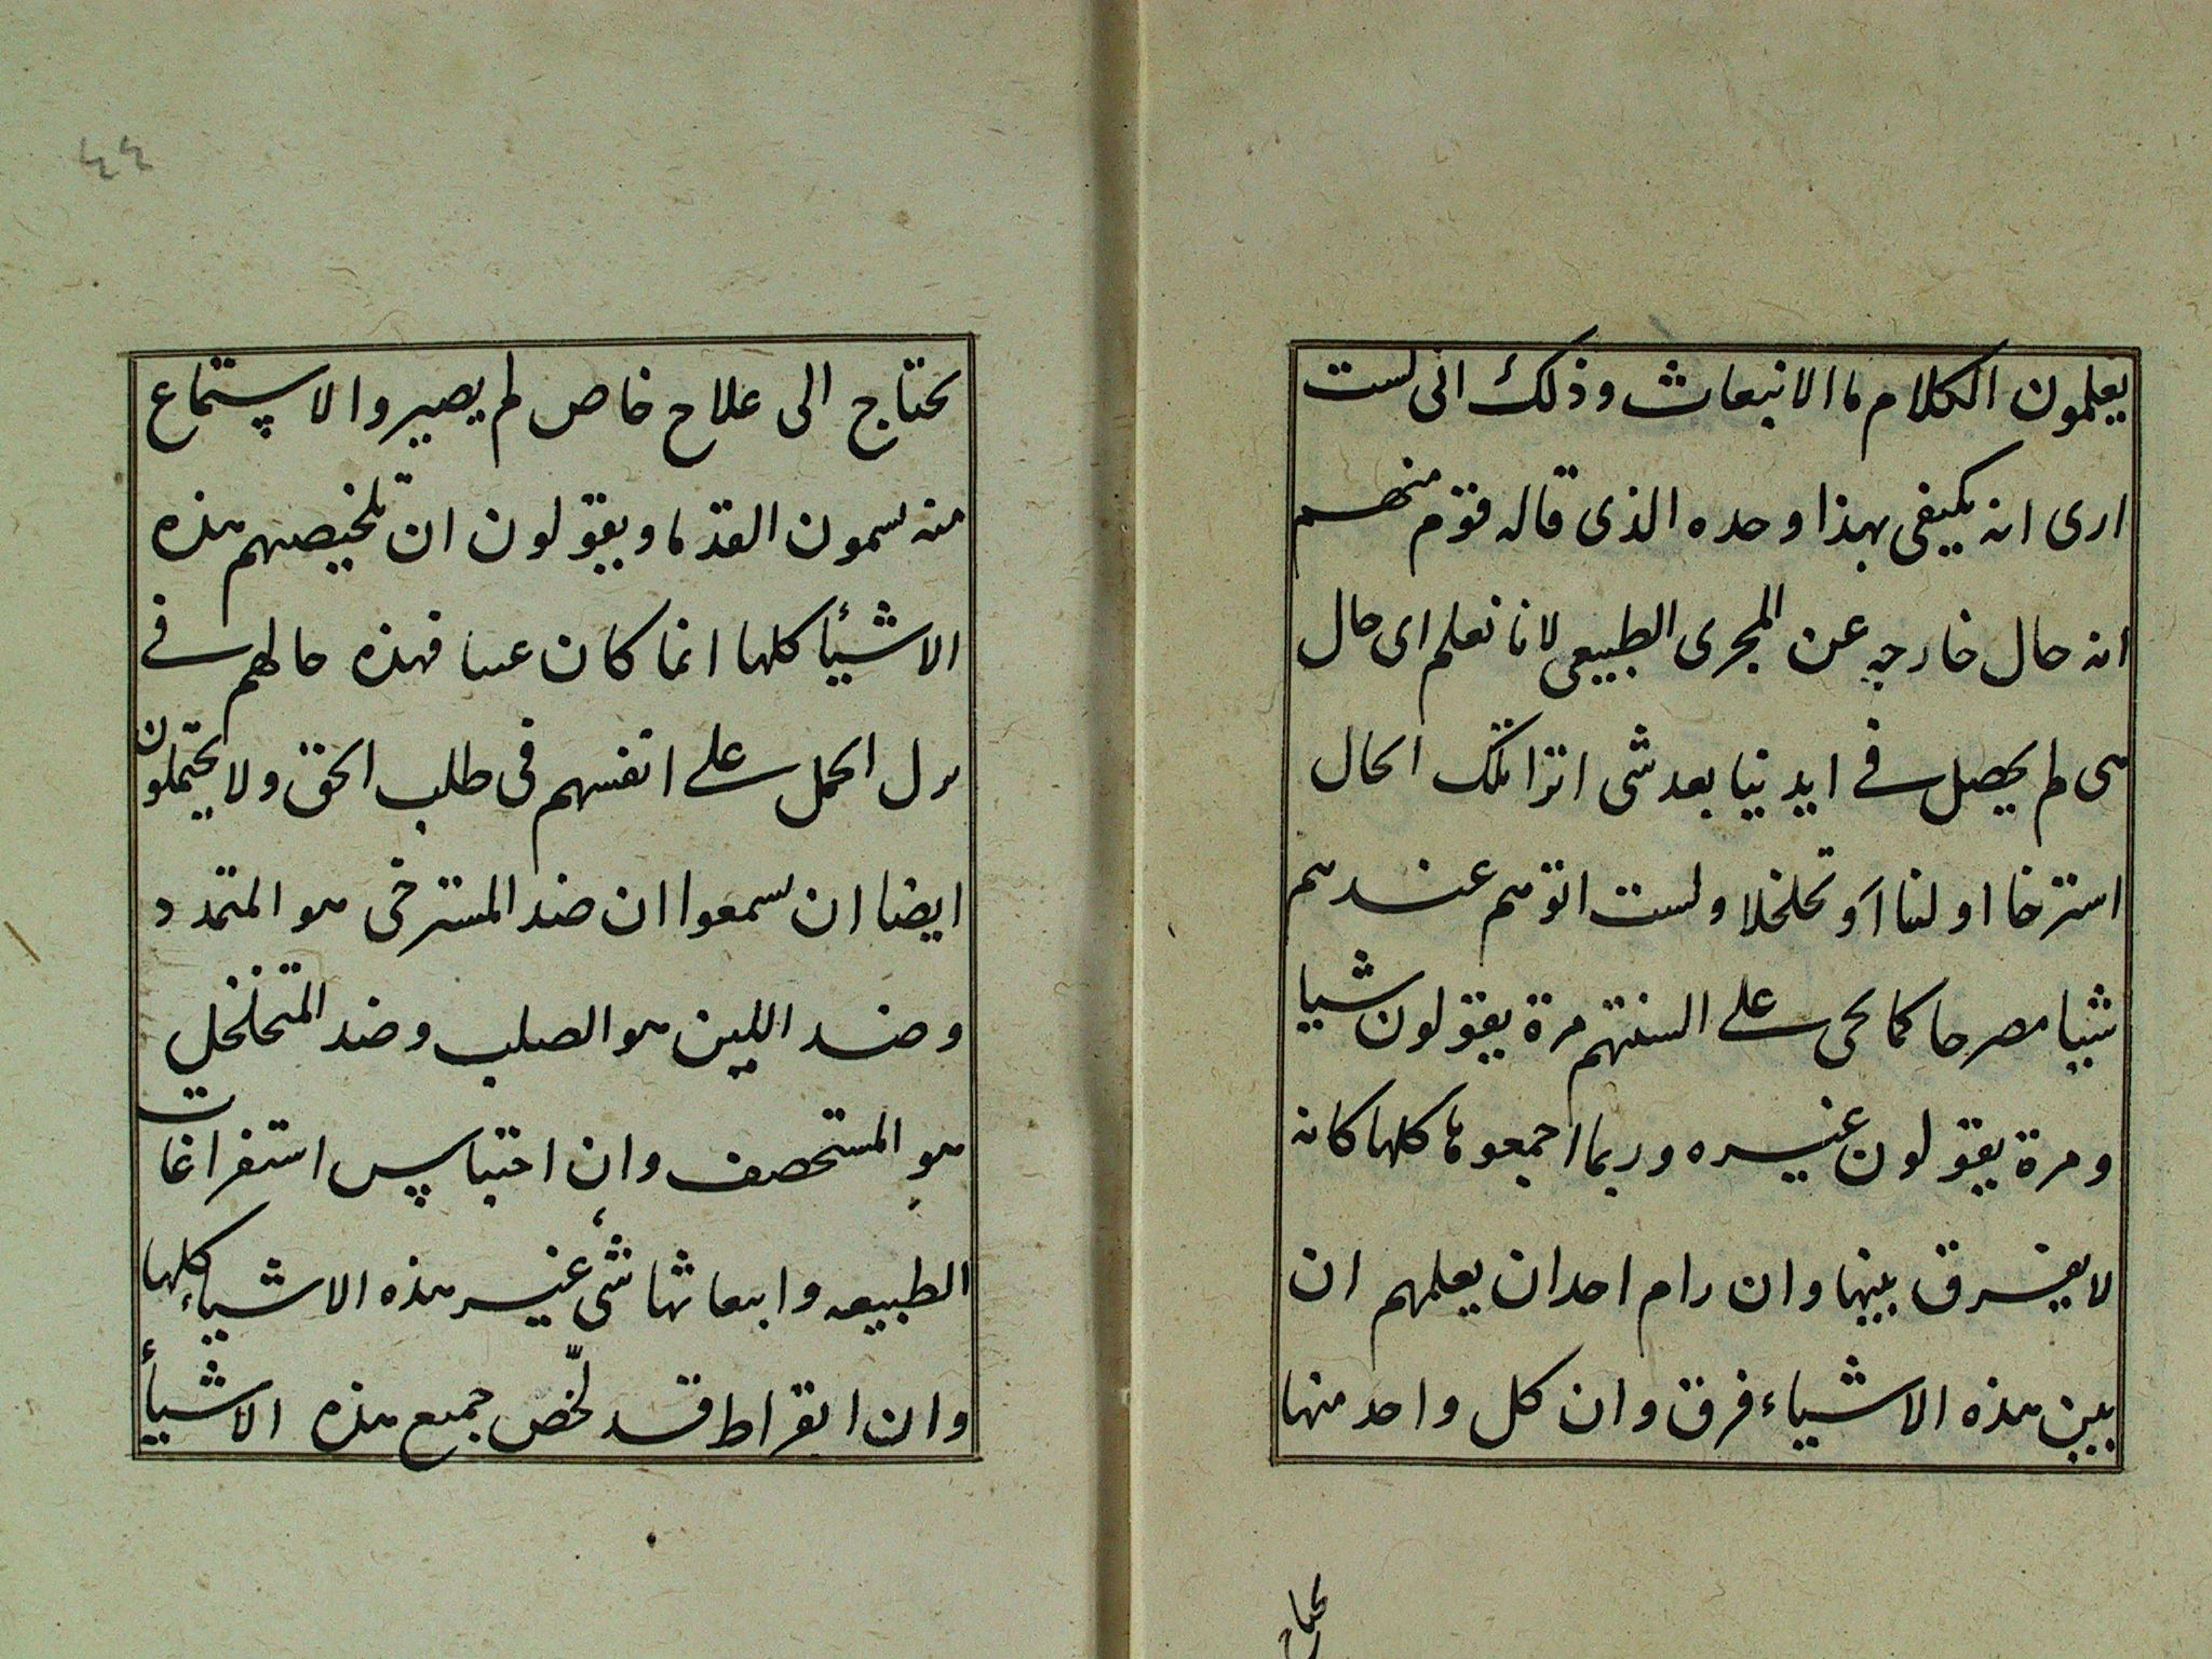 يعلمون الكلام ما الانبعاث وذلك انى لست
ارى انه يكيفى بهذا وحده الذى قاله قوم منهم
انه حال خارجه عن المجرى الطبيعى لانا نعلم اى حال
هى لم يحصل فى ايدينا بعد شى اترا تلك الحال
استرخا او لينا او تخلخلا ولست اتوهم عندهم
شيا مصرحا كما يحى على السنتهم مرة يقولون شيا
ومرة يقولون غيره وربما اجمعوها كلها كانه
لا يفرق بينها وان رام احد ان يعلمهم ان
بين هذه الاشياء فرق وان كل واحد منها
يحتاج
٤٤
يحتاج الى علاج خاص لم يصيروا الاستماع
منه يسمون القدما ويقولون ان تلخيصهم هذه
الاشيأ كلها انما كان عبثا فهذه حالهم فى
الحمل على انفسهم فى طلب الحق ولا يحتملون
ايضا ان يسمعوا ان ضد المسترخى هو المتمدد
وضد اللين هو الصلب وضد المتخلخل
هو المستحصف وان احتباس استفراغات
الطبيعه وانبعاثها شىء غير هذه الاشياء كلها
وان ابقراط قد لخّص جميع هذه الاشيأ